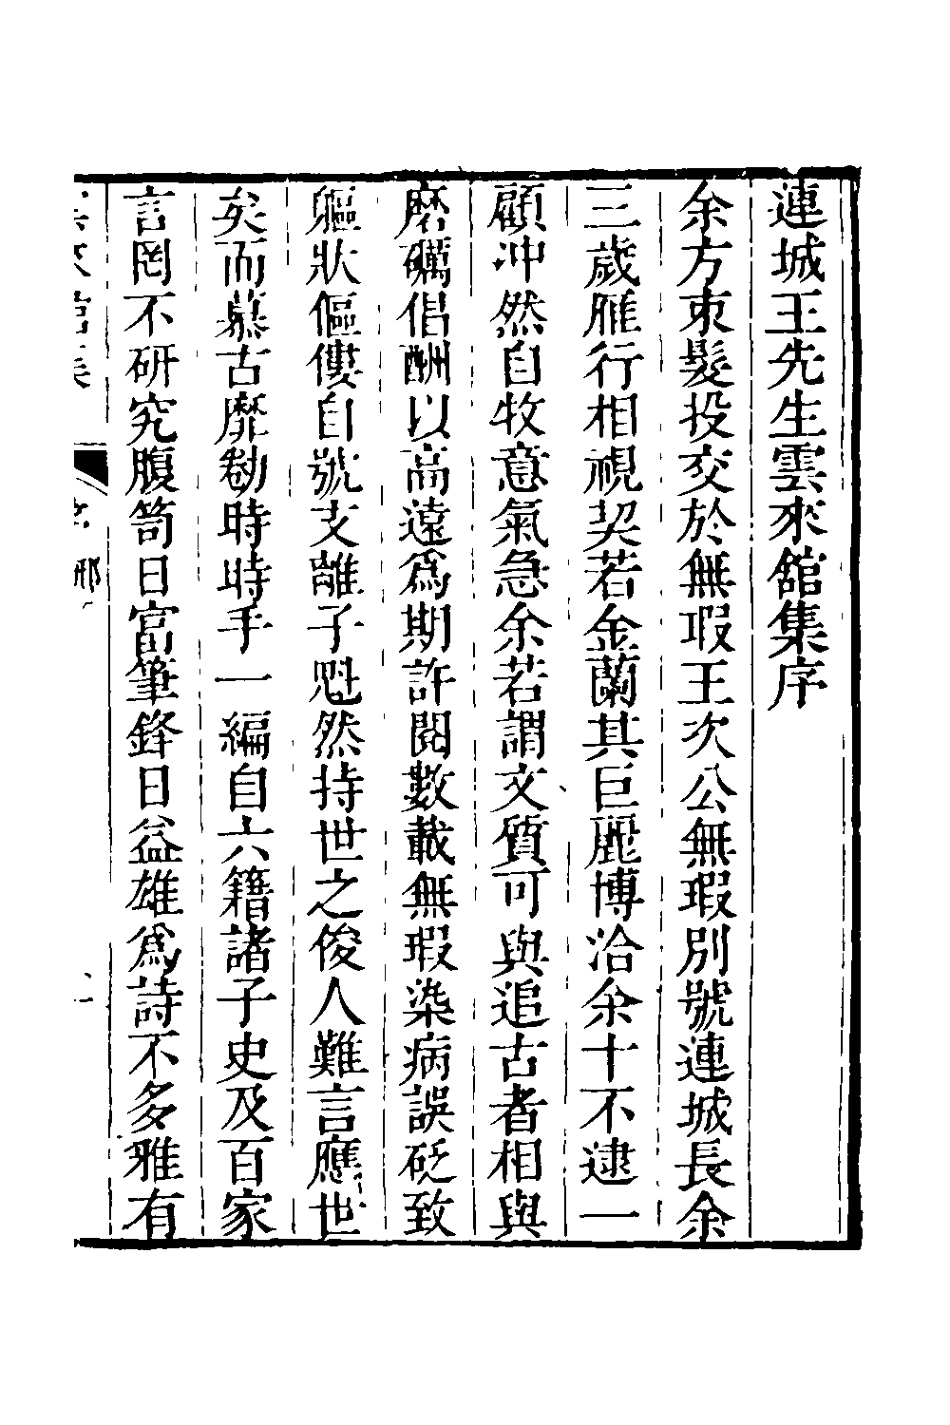 連城王先生雲來舘集序
余方束髮投交於無瑕王次公無瑕別號連城長余
三歲雁行相視契若金蘭其巨麗博洽余十不逮一
顧冲然自牧意氣急余若謂文質可與追古者相與
磨礪倡酬以高遠爲期許閱數載無瑕染病誤砭致
軀狀傴僂自號支離子魁然持世之俊人難言應世
矣而慕古靡勌時時手一編自六籍諸子史及百家
言罔不研究腹笥日富筆鋒日益雄爲詩不多雅有